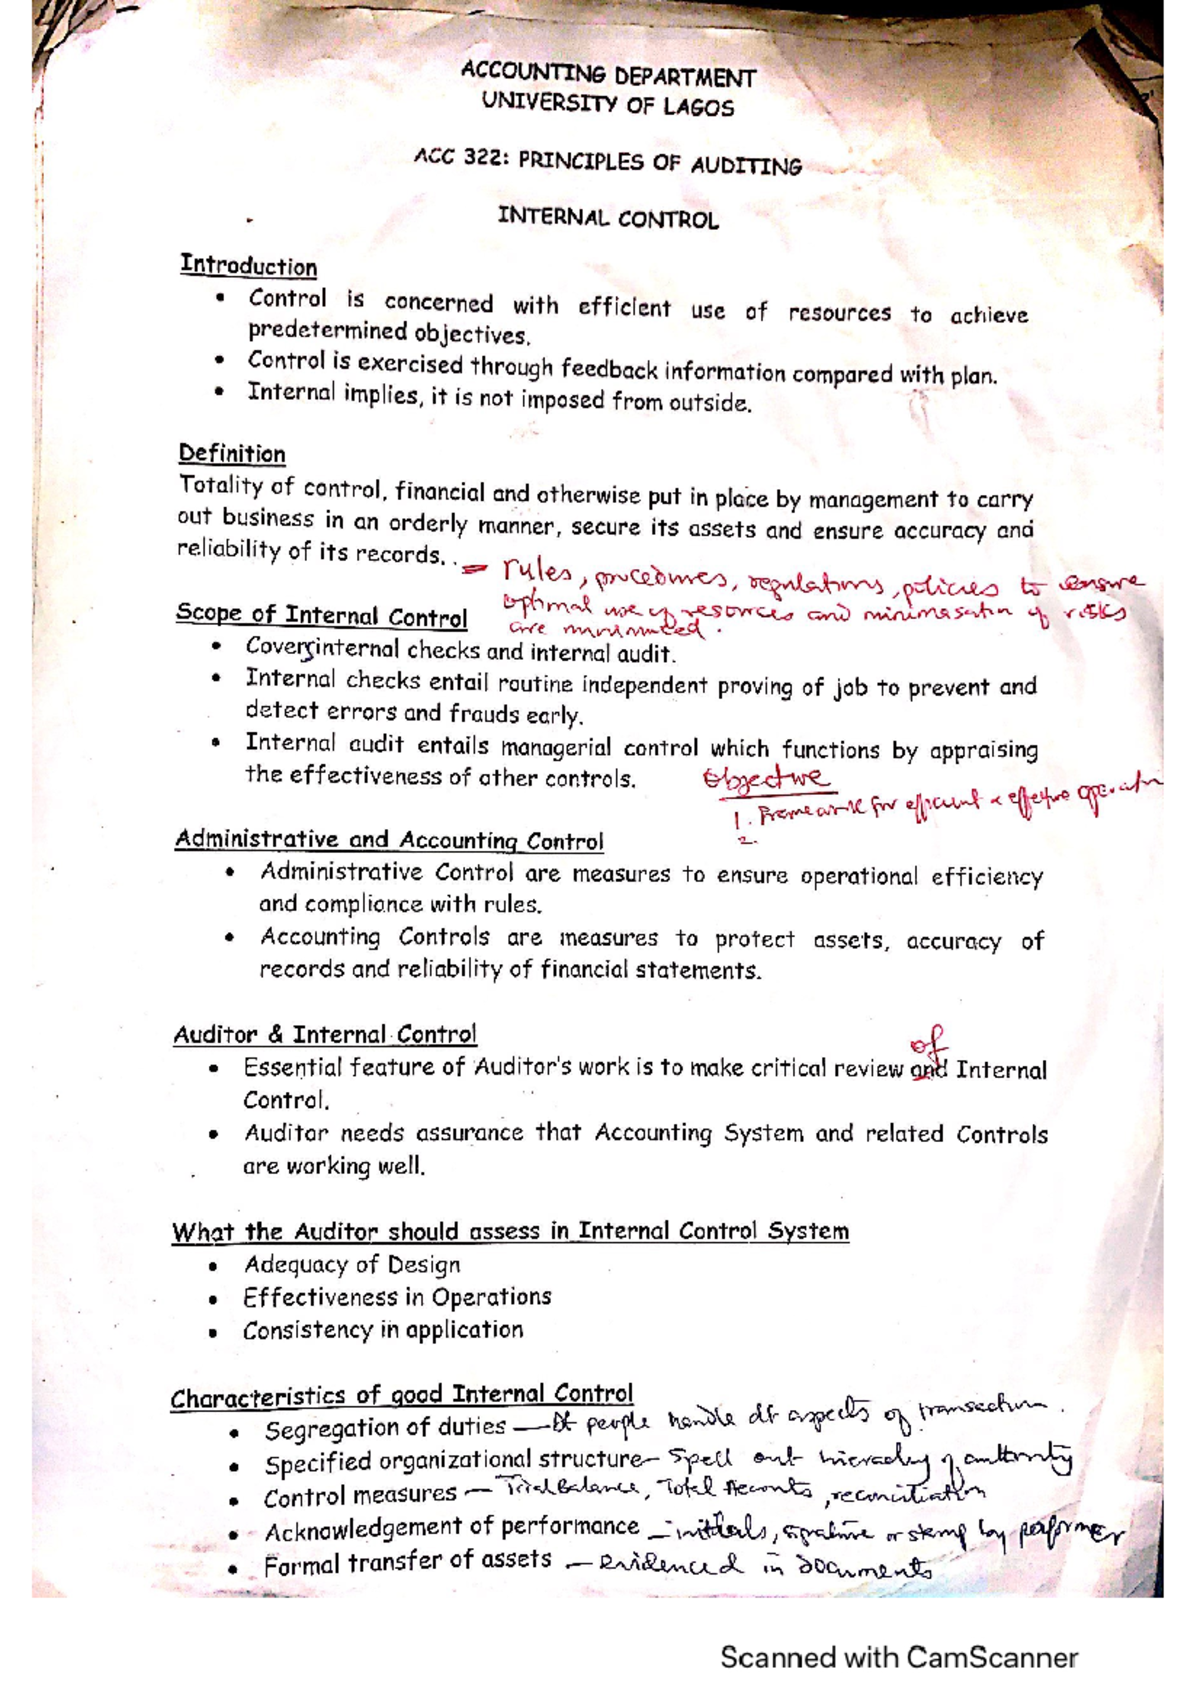 ACCOUNTING DEPARTMENT
UNIVERSITY OF LAGOS
ACC 322: PRINCIPLES OF AUDITING
INTERNAL CONTROL
Introduction
• Control is concerned with efficient use of resources to achieve
predetermined objectives.
• Control is exercised through feedback information compared with plan.
• Internal implies, it is not imposed from outside.
Definition
Totality of control, financial and otherwise put in place by management to carry
out business in an orderly manner, secure its assets and ensure accuracy and
reliability of its records. . = rules, procedures, regulations, policies to ensure
optimal use of resources and minimisation of risks
are minimized.
Scope of Internal Control
• Covers internal checks and internal audit.
• Internal checks entail routine independent proving of job to prevent and
detect errors and frauds early.
• Internal audit entails managerial control which functions by appraising
the effectiveness of other controls. Objective
1. Framework for efficient & effective operation
2.
Administrative and Accounting Control
• Administrative Control are measures to ensure operational efficiency
and compliance with rules.
• Accounting Controls are measures to protect assets, accuracy of
records and reliability of financial statements.
Auditor & Internal Control
of
• Essential feature of Auditor's work is to make critical review and Internal
Control.
• Auditor needs assurance that Accounting System and related Controls
are working well.
What the Auditor should assess in Internal Control System
• Adequacy of Design
• Effectiveness in Operations
• Consistency in application
Characteristics of good Internal Control
• Segregation of duties — Dt people handle dt aspects of transaction.
• Specified organizational structure – Spell out hierachy of authority
• Control measures – Trial Balance, Total Accounts, reconciliation
• Acknowledgement of performance – initials, signature or stamp by performer
• Formal transfer of assets – evidenced in documents
Scanned with CamScanner